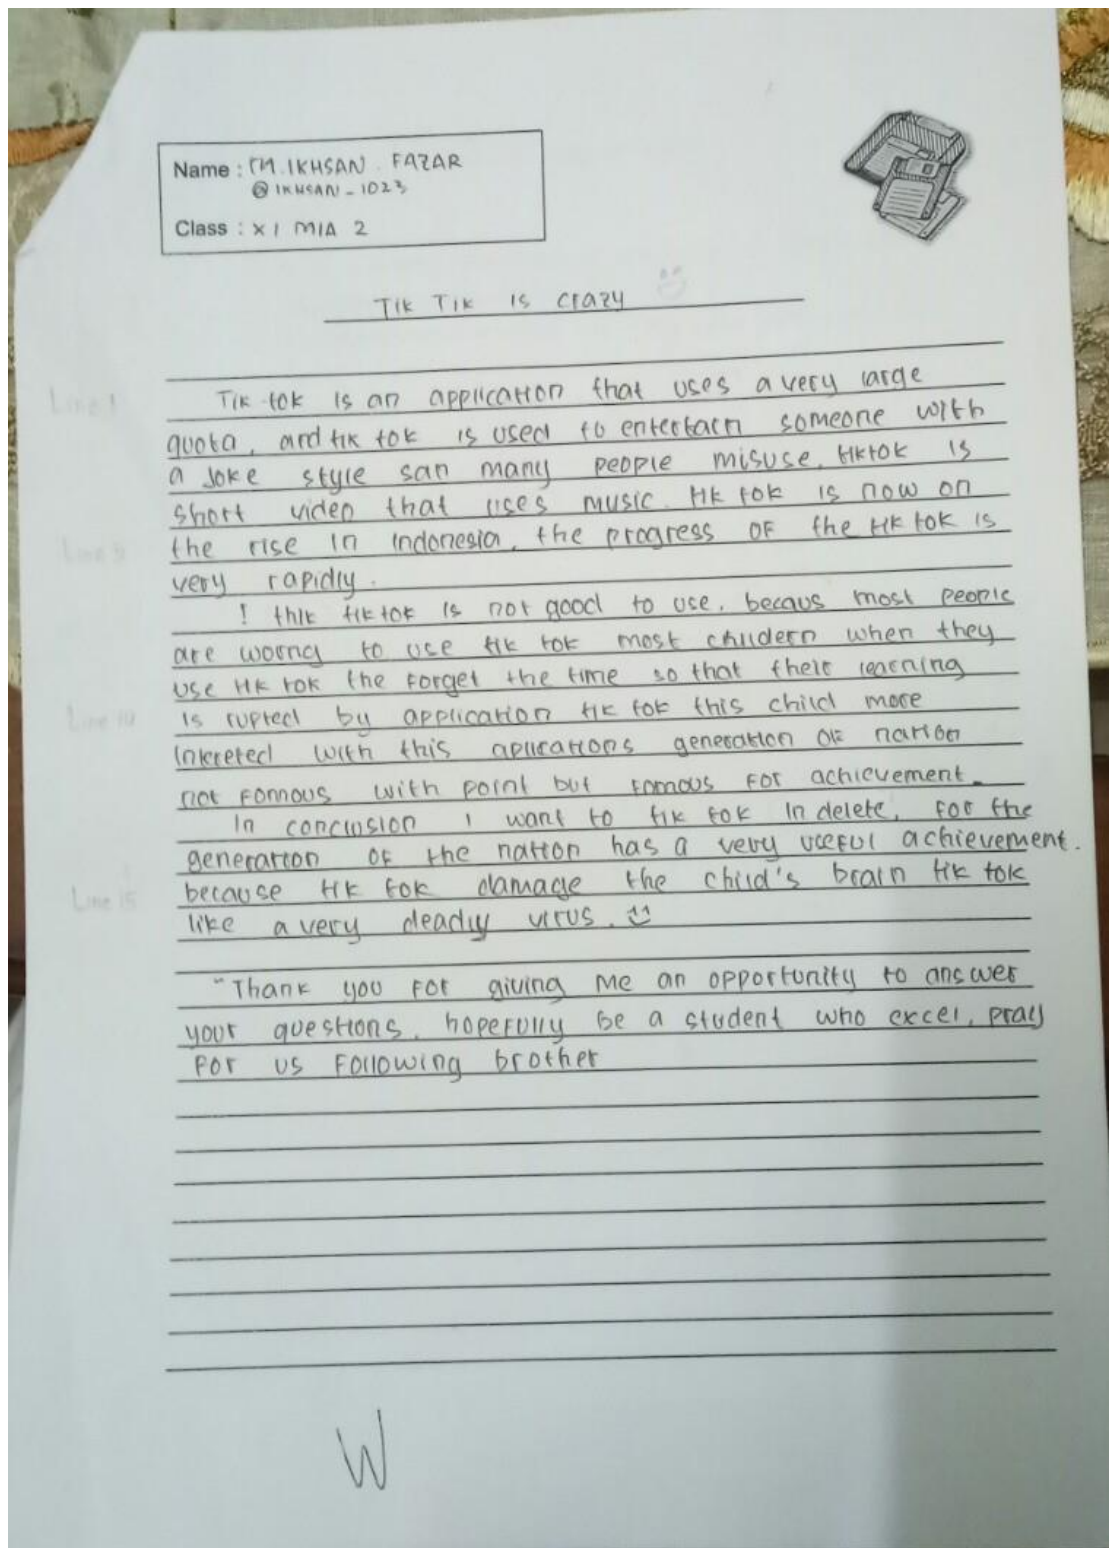 Name : M. IKHSAN . FAZAR
@ IKHSAN - 1023
Class : XI MIA 2
Tik Tik is crazy
Line 1
Tik tok is an application that uses a very large
quota, and tik tok is used to entertain someone with
a Joke style san many people misuse. tiktok is
short video that uses music. tik tok is now on
Line 5
the rise in indonesia, the progress of the tik tok is
very rapidly.
I thik tiktok is not good to use. becaus most people
are worng to use tik tok most childern when they
use tik tok the forget the time so that their learning
Line 10
is rupted by application tik tok this child more
intereted with this aplications generation of nation
not fomous with point but fomous for achievement.
in conclusion i want to tik tok in delete, for the
generation of the nation has a very useful achievement.
Line 15
because tik tok damage the child's brain tik tok
like a very deadly virus.
"Thank you for giving me an opportunity to answer
your questions. hopefully be a student who excel, pray
for us following brother
W